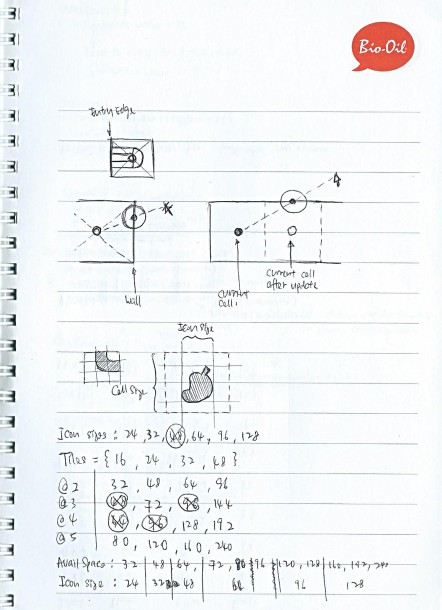 Bio-Oil
Entry Edge
Wall
Current Cell
Current Cell
after update
Icon Size
Cell Size
Icon sizes : 24, 32, 48, 64, 96, 128
Tiles = { 16, 24, 32, 48 }
@2 32, 48, 64, 96
@3 48, 72, 96, 144
@4 64, 96, 128, 192
@5 80, 120, 160, 240
Avail Space : 32 | 48 | 64, | 72, 80 | 96 | 120, 128 | 160, 192, 240
Icon size : 24 | 32 | 48 | 64 | 96 | 128